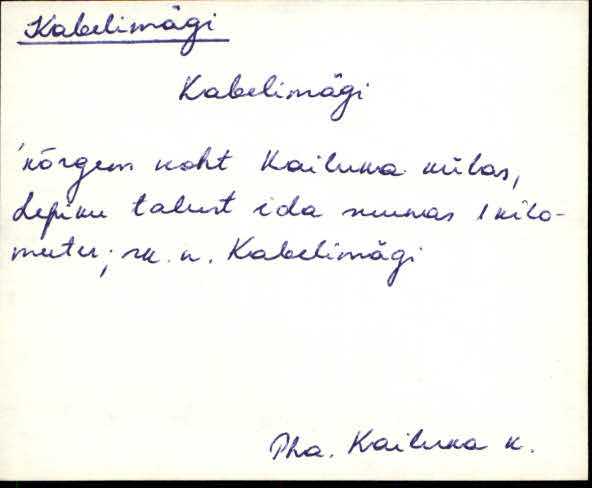 Kabelimägi
Kabelimägi
'kõrgem koht Kailuka külas,
Lepiku talust ida suunas 1 kilo-
meeter; rk. n. Kabelimägi
Pha. Kailuka k.